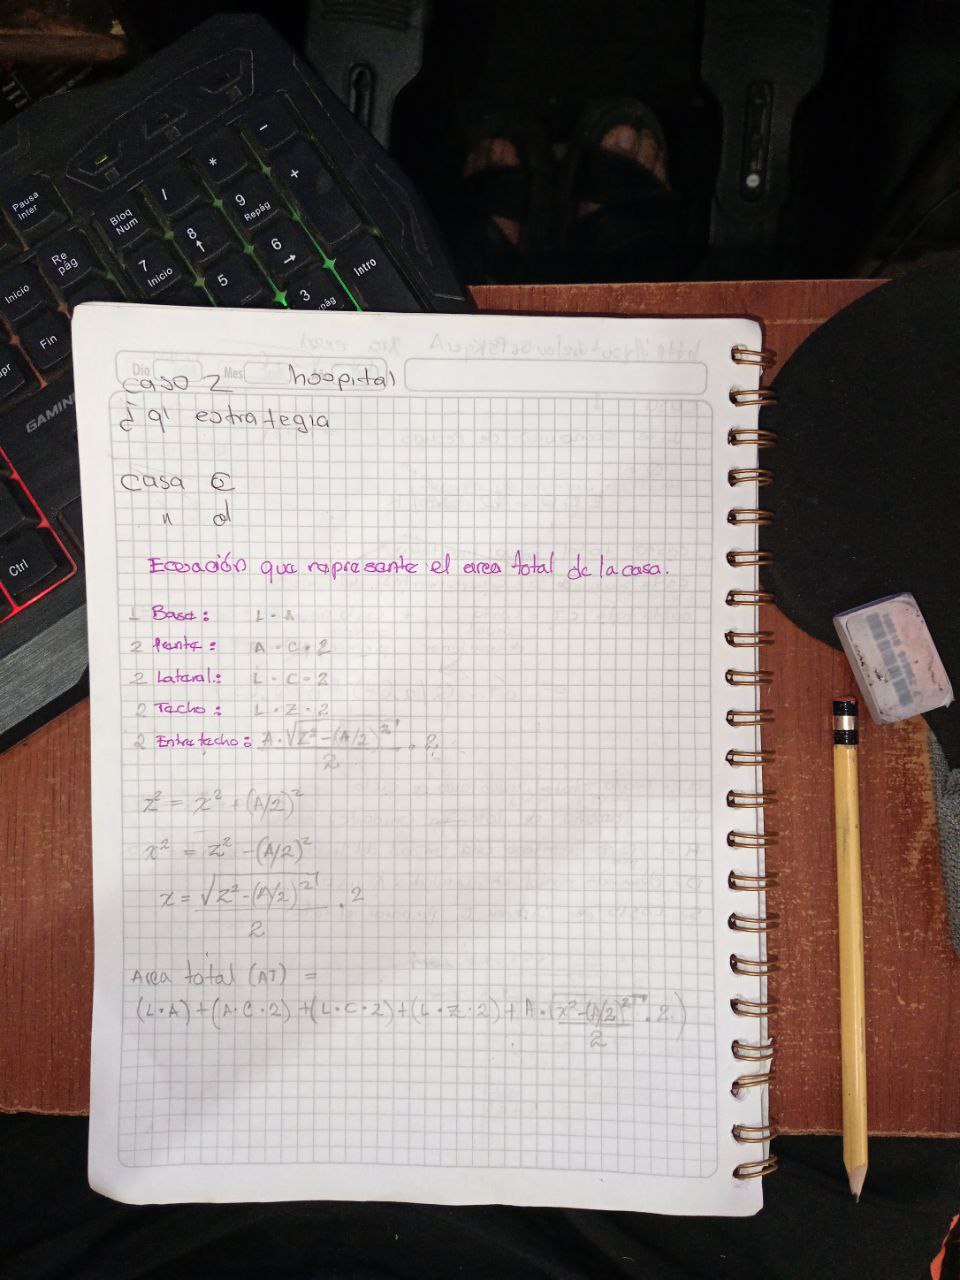 Pausa
Inter
Bloq
Num
/
*
-
Inicio
Re
pág
7
Inicio
8
9
Repág
+
Fin
5
6
3
Intro
GAMIN
Ctrl
Dia
Mes
caso 2 hospital
¿ q' estrategia
casa C
n d
Ecuación que represente el area total de la casa.
1 Base: L · A
2 frente: A · C · 2
2 Lateral: L · C · 2
2 Techo: L · Z · 2
2 Entretecho: A · √Z² - (A/2)² / 2 · 2
z² = x² + (A/2)²
x² = z² - (A/2)²
x = √z² - (A/2)² / 2 · 2
Area total (AT) =
(L·A) + (A·C·2) + (L·C·2) + (L·Z·2) + A · (√x² - (A/2)² / 2 · 2)